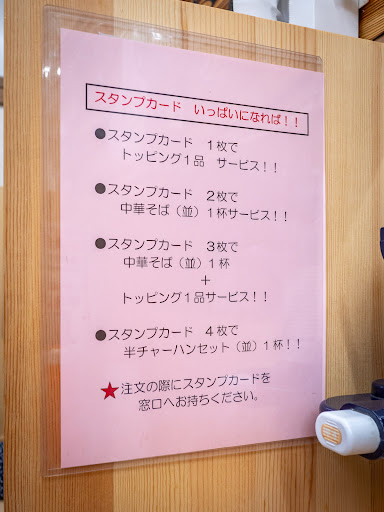 スタンプカード　いっぱいになれば！！
●スタンプカード　１枚で
トッピング１品　サービス！！
●スタンプカード　２枚で
中華そば（並）１杯サービス！！
●スタンプカード　３枚で
中華そば（並）１杯
＋
トッピング１品サービス！！
●スタンプカード　４枚で
半チャーハンセット（並）１杯！！
★注文の際にスタンプカードを
窓口へお持ちください。